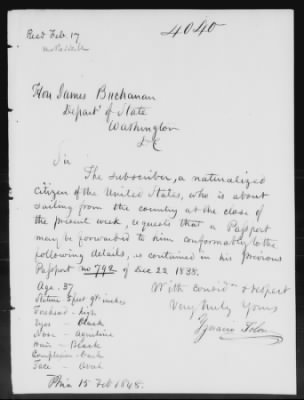 Recd Feb. 17
4040
Hon James Buchanan
Depart of State
Washington
D C
Sir
The subscriber, a naturalized
Citizen of the United States, who is about
sailing from the country at the close of
the present week, requests that a Passport
may be forwarded to him conformably to the
following details, as contained in his previous
Passport no 792 of Dec 22 1838.
Age. 37
With considn & respect
Stature 5 feet 9½ inches
Very truly Yours
Forehead - high
Ignacio
Eyes - Black
Nose - Aquiline
Hair - Black
Complexion - Dark
Face - Oval
Phia 15 Feb 1848.